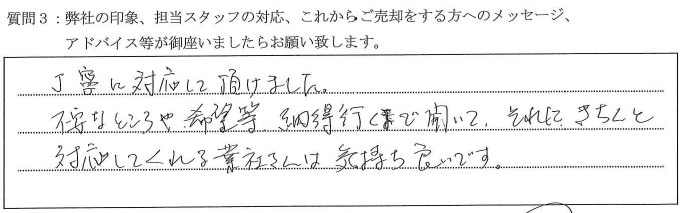 質問3：弊社の印象、担当スタッフの対応、これからご売却をする方へのメッセージ、
アドバイス等が御座いましたらお願い致します。
丁寧に対応して頂けました。
不安なところや希望等納得行くまで聞いて、それにきちんと
対応してくれる業社さんは気持ち良いです。